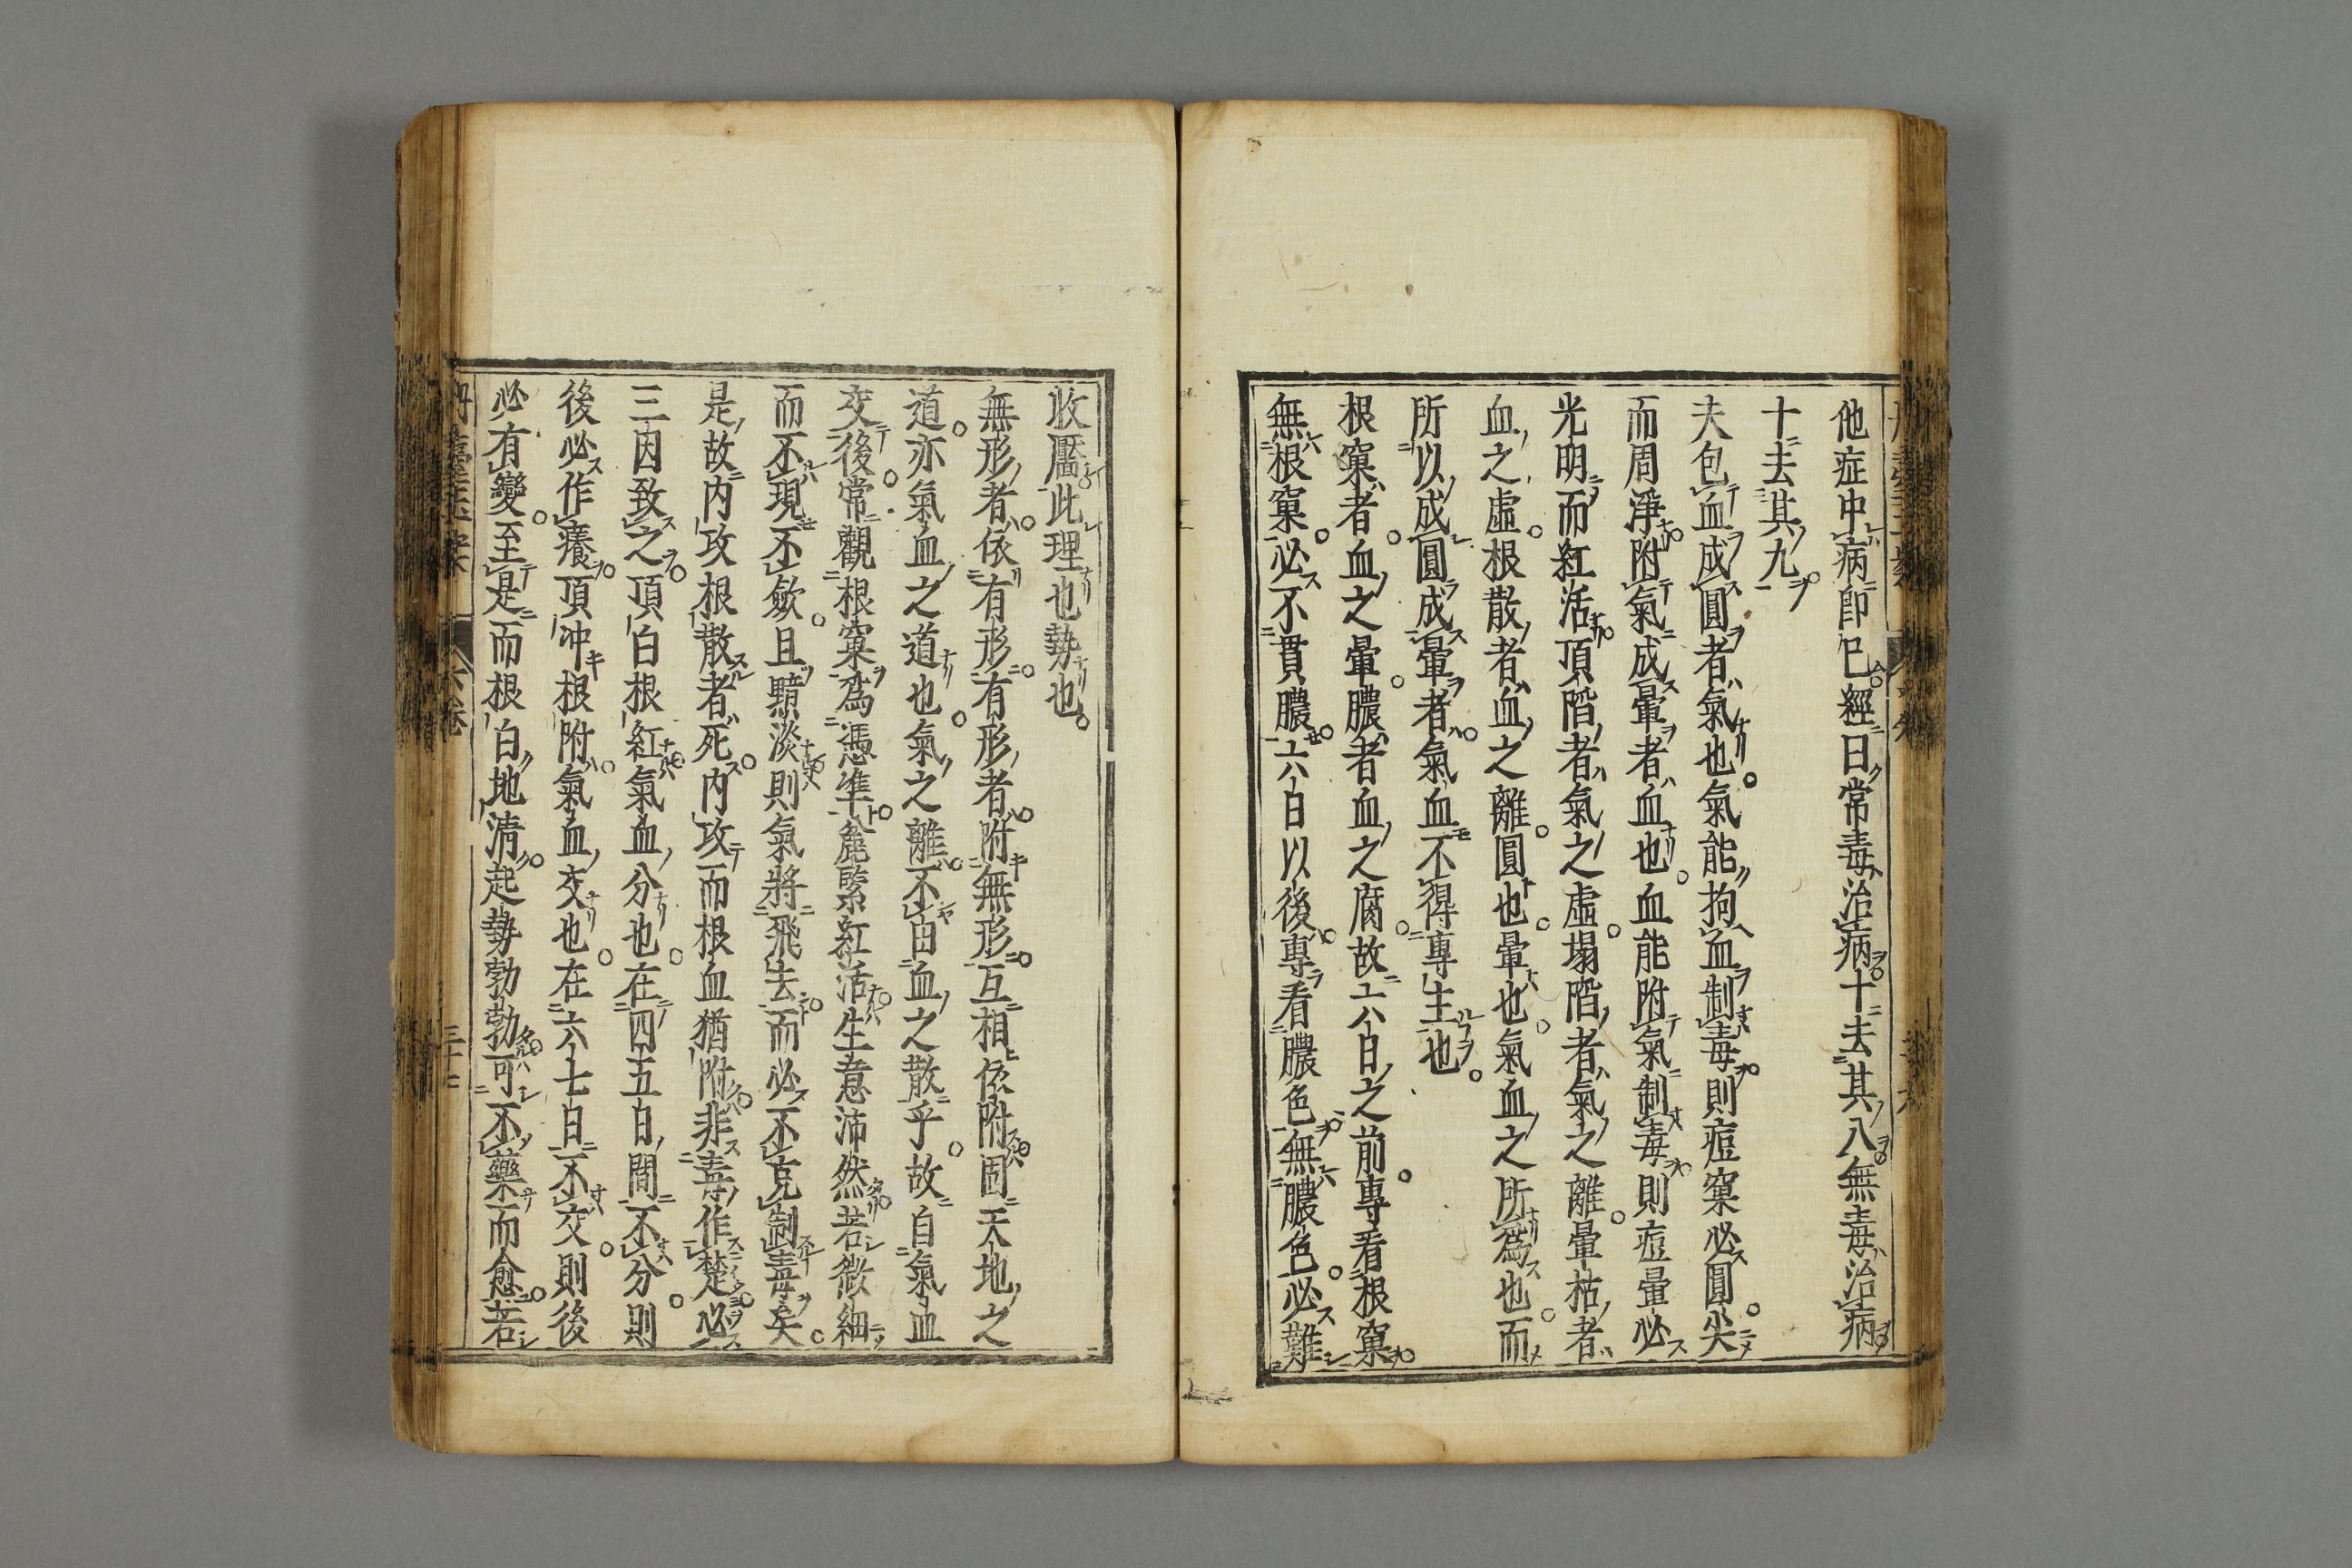 他症中病卽已經曰常毒治病十去其八無毒治病
十去其九
夫包血成圓者氣也氣能拘血制毒則痘窠必圓尖
而周淨附氣成暈者血也血能附氣制毒則痘暈必
光明而紅活頂陷者氣之虛塌陷者氣之離暈枯者
血之虛根散者血之離圓也暈也氣血之所爲也而
所以成圓成暈者氣血不得專主也
根窠者血之暈膿者血之腐故六日之前專看根窠
無根窠必不貫膿六日以後專看膿色無膿色必難
收靨此理也勢也
無形者依有形有形者附無形互相依附固天地之
道亦氣血之道也氣之離不由血之散乎故自氣血
交後常觀根窠爲憑準麁緊紅活生意沛然若微細
而不現不歛且黯淡則氣將飛去而必不克制毒矣
是故内攻根散者死内攻而根血猶附非毒作楚必
三因致之頂白根紅氣血分也在四五日間不分則
後必作癢頂冲根附氣血交也在六七日不交則後
必有變至是而根白地清起勢勃勃可不藥而愈若
六卷
三十七